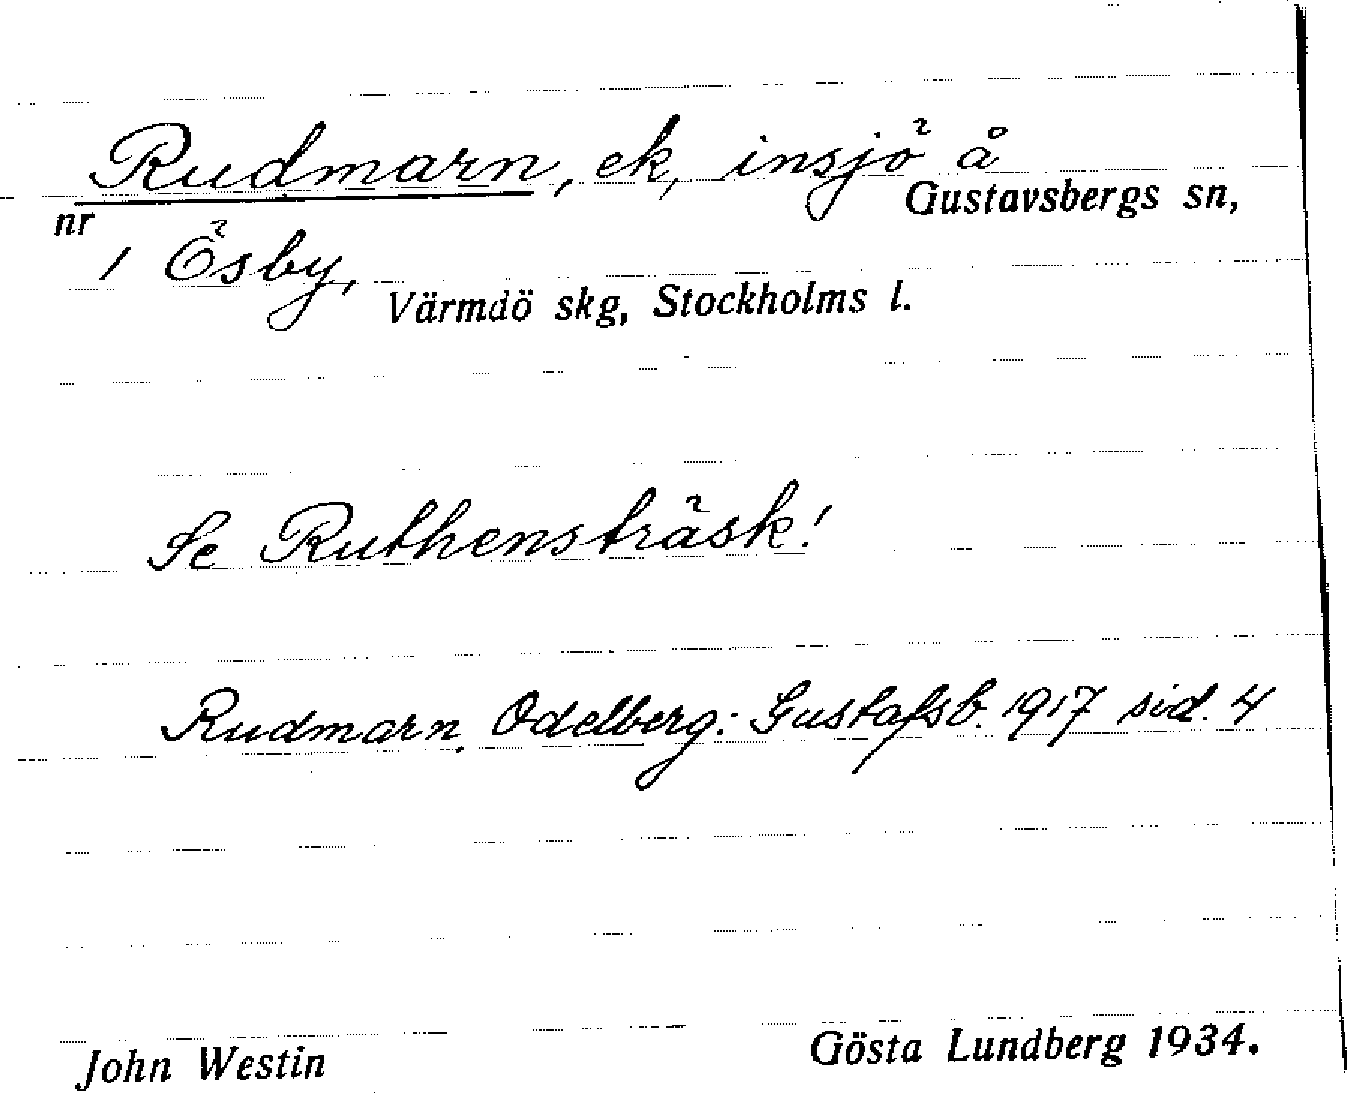 Rudmarn, ek, insjö å
Gustavsbergs sn,
nr 1 Ösby,
Värmdö skg, Stockholms l.
Se Ruthensträsk!
Rudmarn. Odelberg: Gustafsb. 1917 sid. 4
John Westin
Gösta Lundberg 1934.